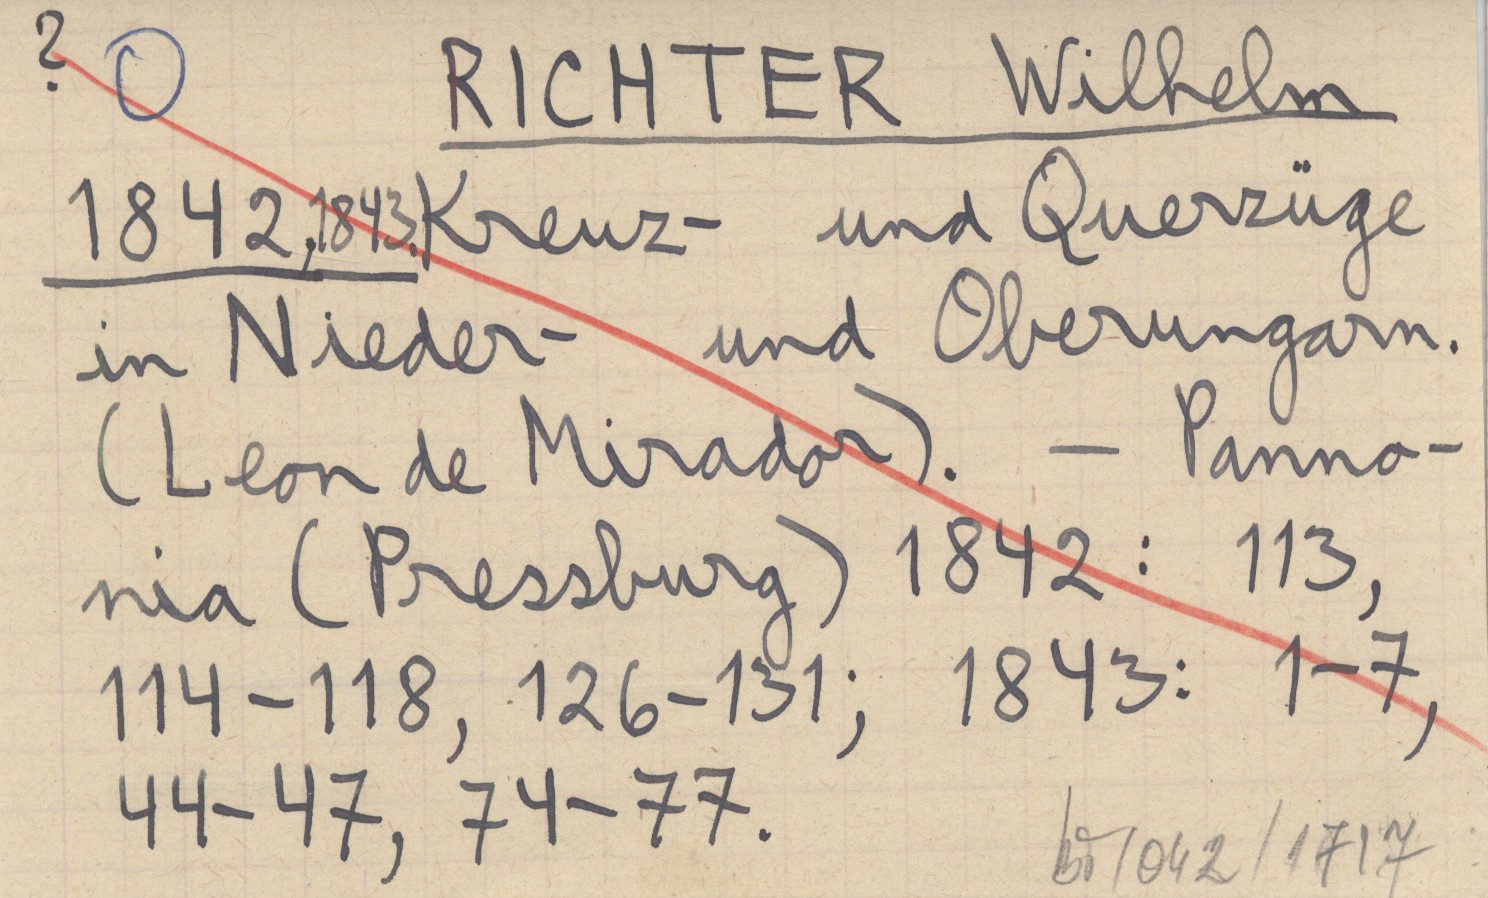 ? O RICHTER Wilhelm
1842, 1843. Kreuz- und Querzüge
in Nieder- und Oberungarn.
(Leon de Mirador). — Panno-
nia (Pressburg) 1842: 113,
114-118, 126-131; 1843: 1-7,
44-47, 74-77.
/042/1717